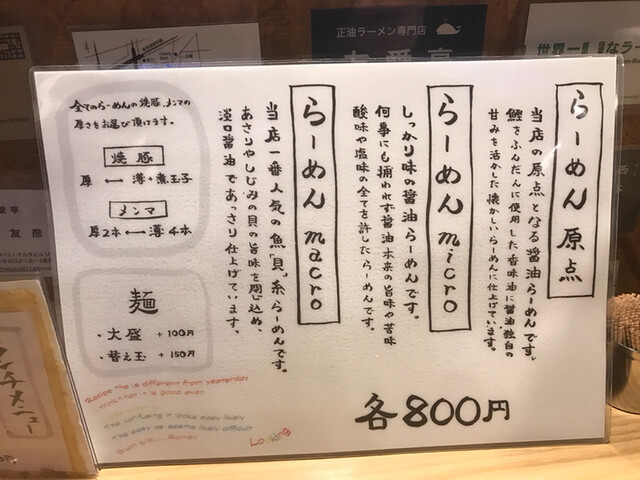 らーめん 原点
当店の原点となる醤油らーめんです。
鰹をふんだんに使用した香味油に醤油独自の
甘みを活かした懐かしいらーめんに仕上げています。
らーめん micro
しっかり味の醤油らーめんです。
何事にも捕われず醤油本来の旨味や苦味
酸味や塩味の全てを許したらーめんです。
らーめん macro
当店一番人気の魚「貝」系らーめんです。
あさりやしじみの貝の旨味を閉じ込め、
淡口醤油であっさり仕上げています。
各800円
全てのらーめんの焼豚、メンマの
厚さをお選び頂けます。
焼豚
厚 ⟷ 薄+煮玉子
メンマ
厚2本 ⟷ 薄4本
麺
・大盛 +100円
・替え玉 +150円
Recipe the is different from yesterday
it is good even
The confusing it looks easy likely
The easy as seems likely difficult
Looking
正油ラーメン専門店
世界一
友彦
メニュー